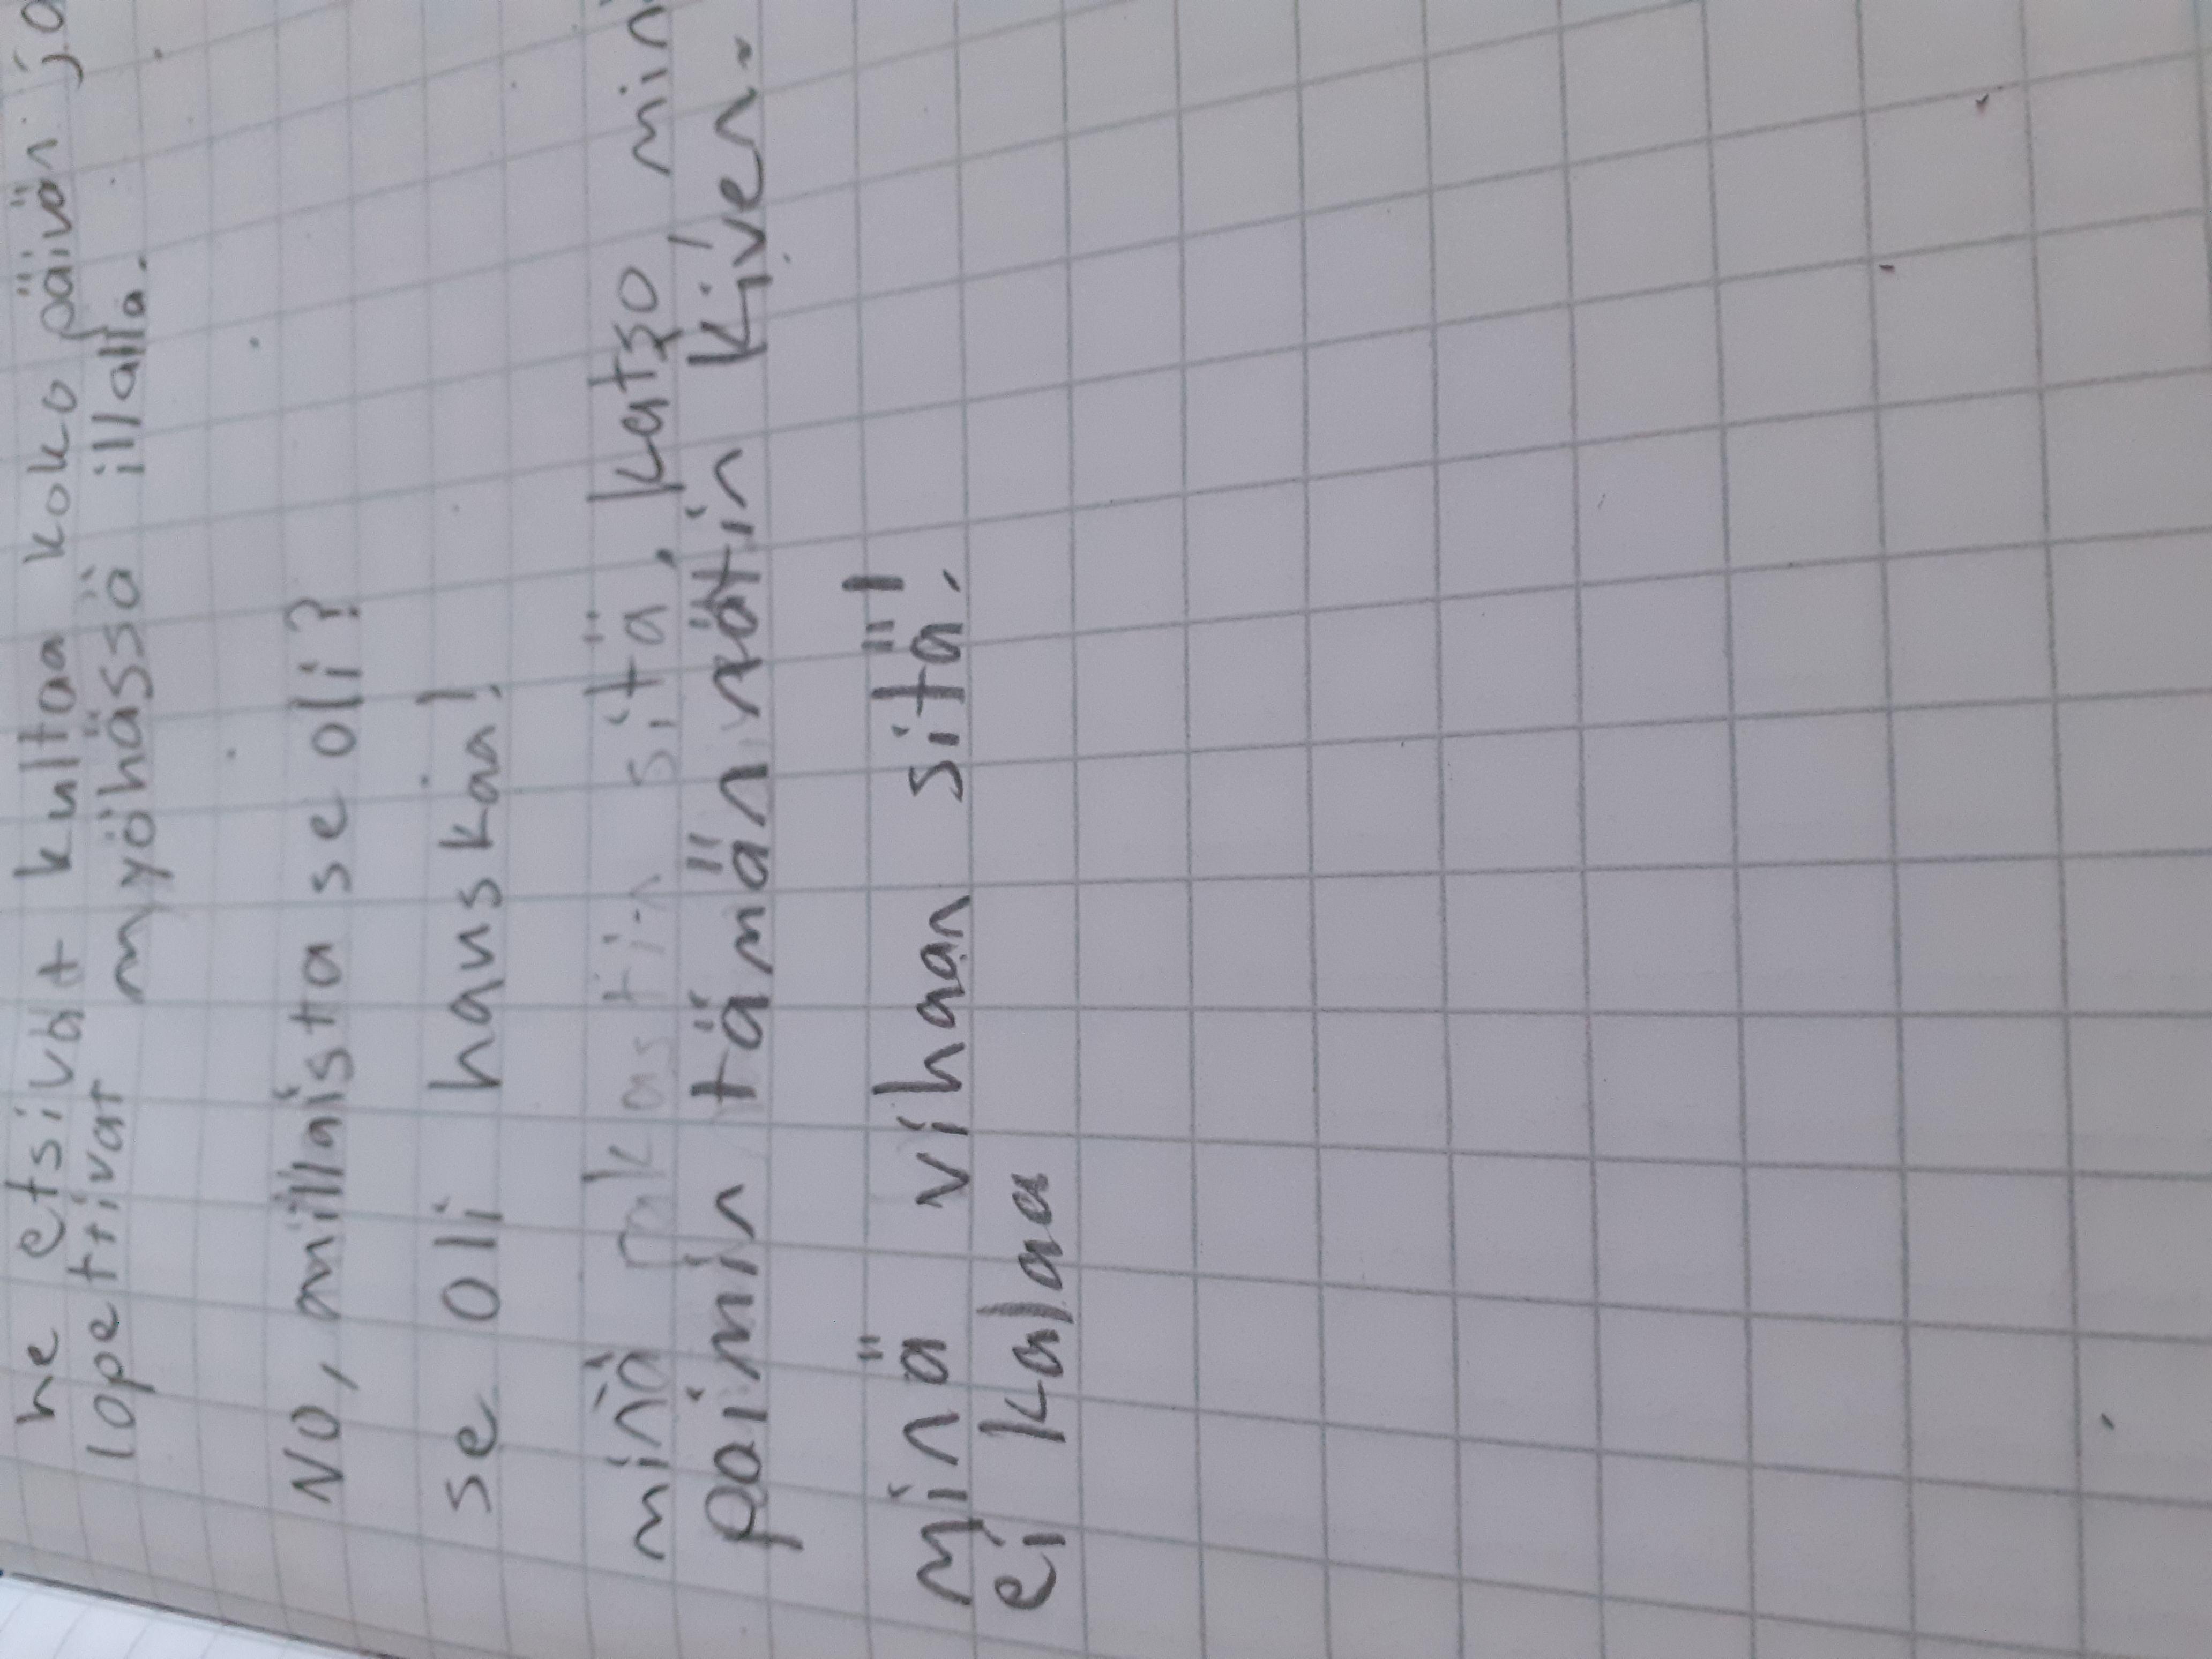 he etsivät kultaa koko päivän ja
lopettivat myöhässä illalla.
No, millaista se oli?
se oli hauskaa!
minä rakastin sitä, katso min
poimin tämän nätin kiven.
minä vihaan sitä!
ei kalaa